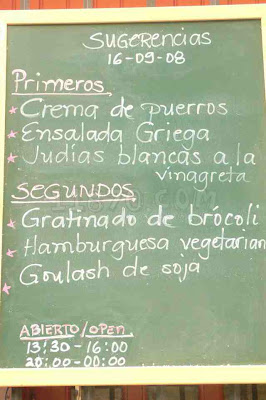 SUGERENCIAS
16-09-08
Primeros
* Crema de puerros
* Ensalada Griega
* Judías blancas a la
vinagreta
SEGUNDOS
* Gratinado de brócoli
* Hamburguesa vegetarian
* Goulash de soja
ABIERTO/OPEN
13:30-16:00
20:00-00:00